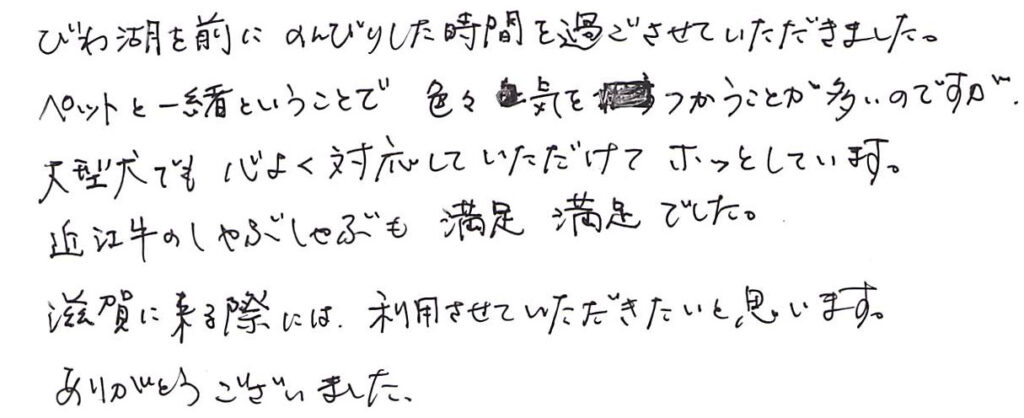 びわ湖を前にのんびりした時間を過ごさせていただきました。
ペットと一緒ということで 色々気をつかうことが多いのですが、
大型犬でも 心よく対応していただけて ホッとしています。
近江牛のしゃぶしゃぶも 満足 満足でした。
滋賀に来る際には、利用させていただきたいと思います。
ありがとうございました、